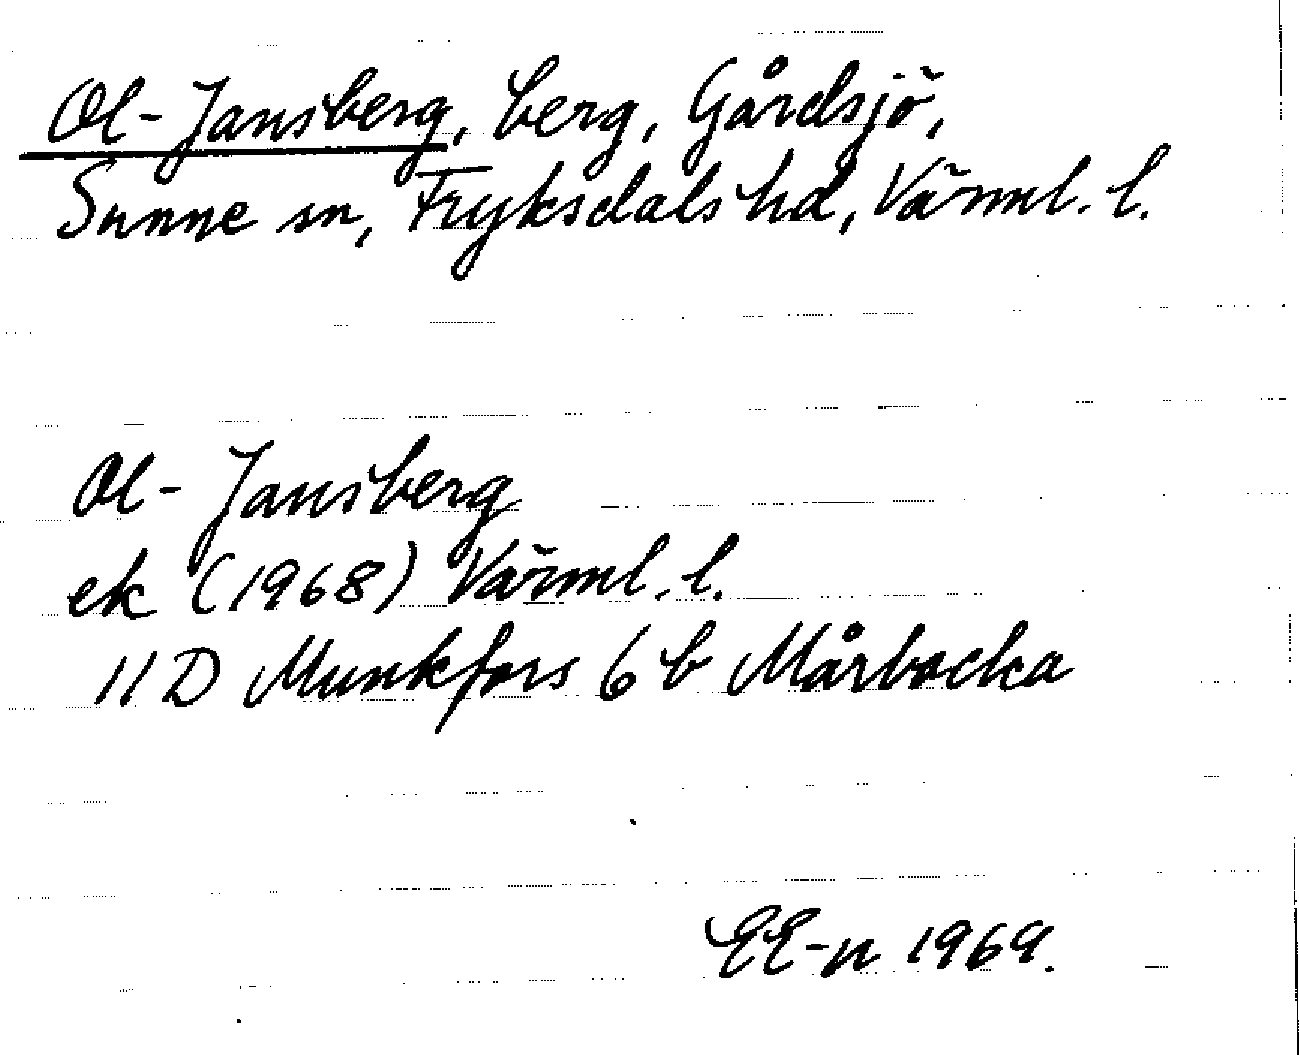 Ol-Jansberg, berg, Gårdsjö,
Sunne sn, Fryksdals hd, Värml. l.
Ol-Jansberg
ek (1968) Värml. l.
11 D Munkfors 6 b Mårbacka
EE-n 1969.